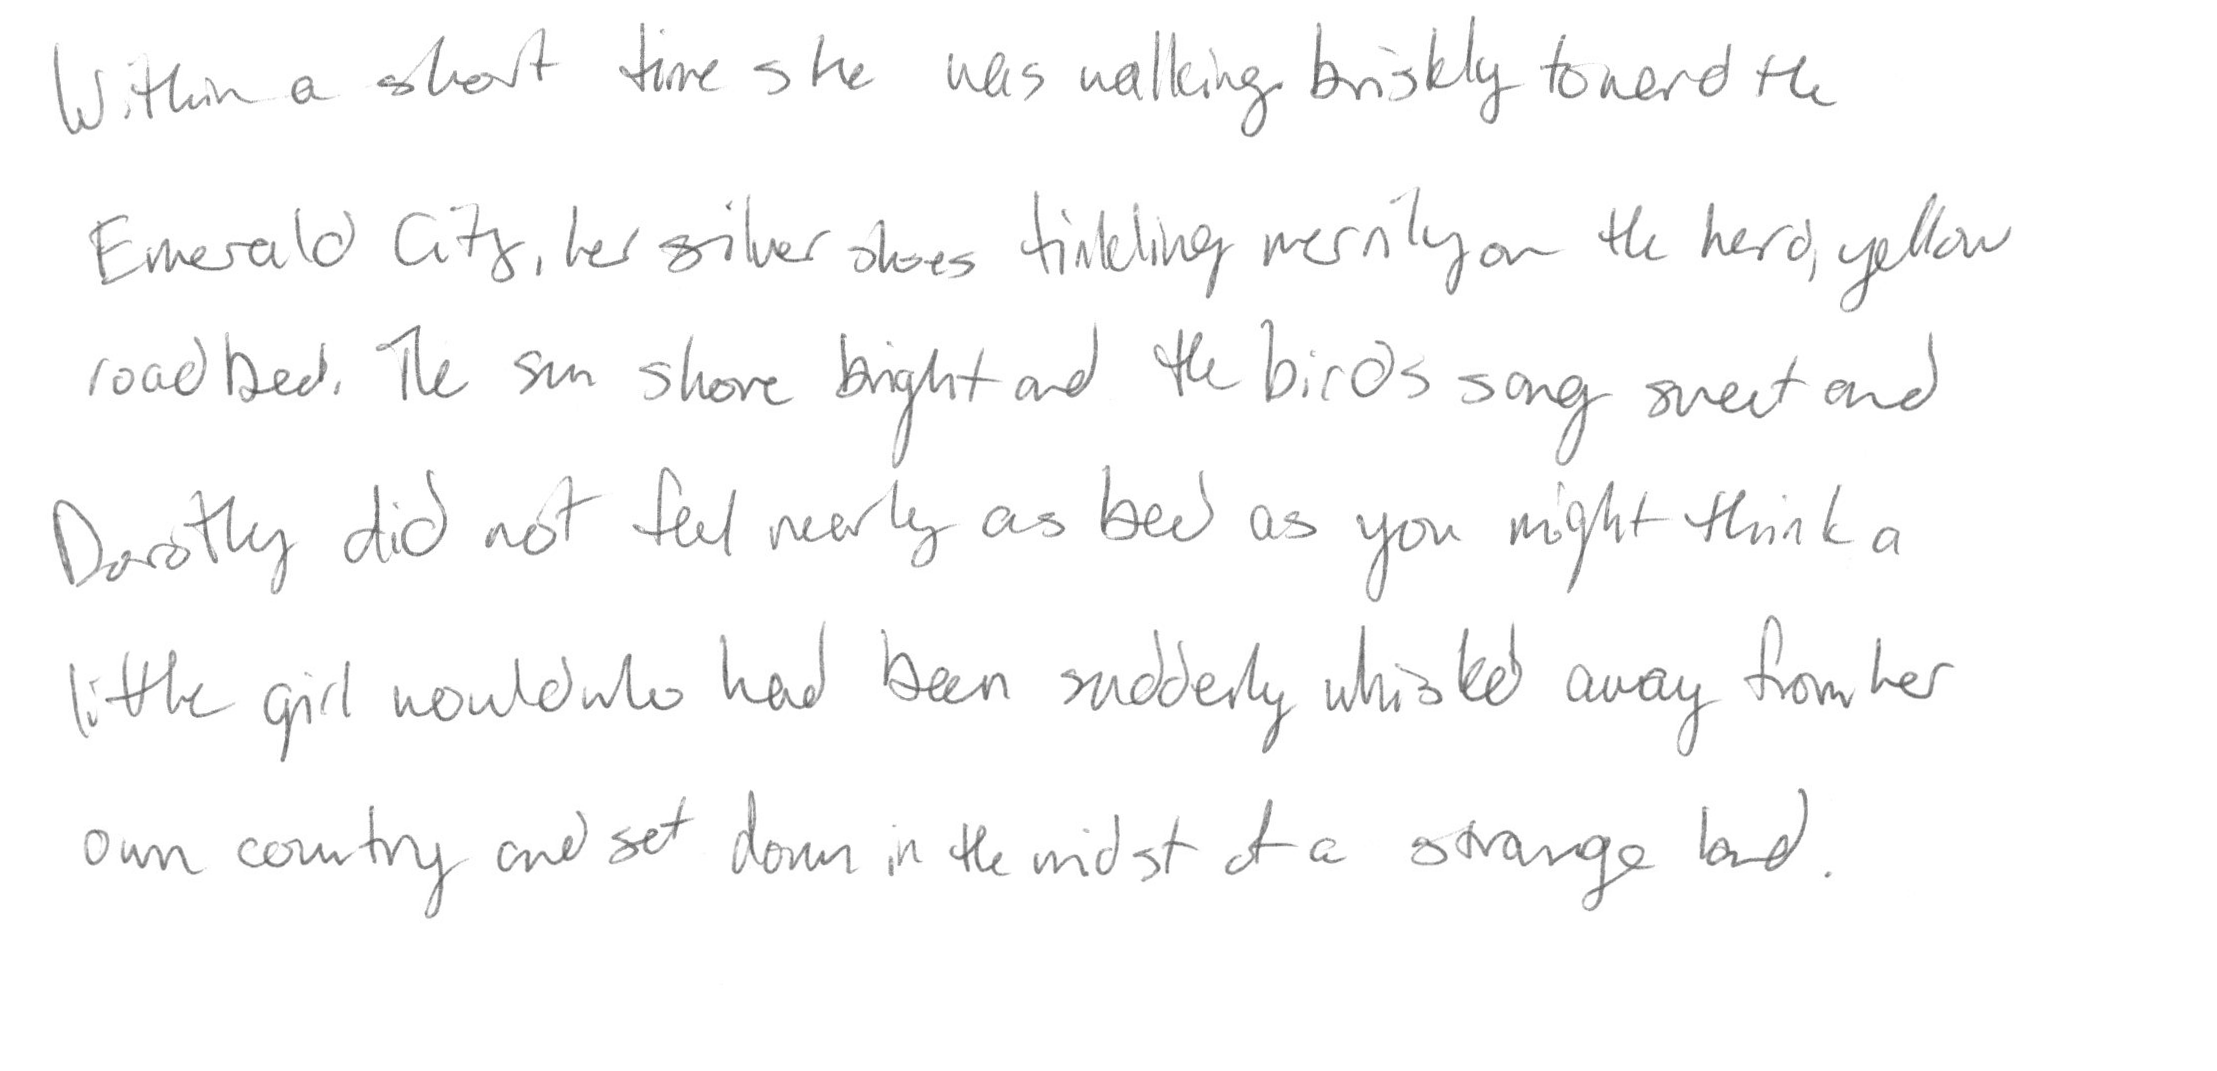 Within a short time she was walking briskly toward the
Emerald City, her silver shoes tinkling merrily on the hard, yellow
roadbed. The sun shone bright and the birds song sweet and
Dorothy did not feel nearly as bad as you might think a
little girl would who had been suddenly whisked away from her
own country and set down in the midst of a strange land.